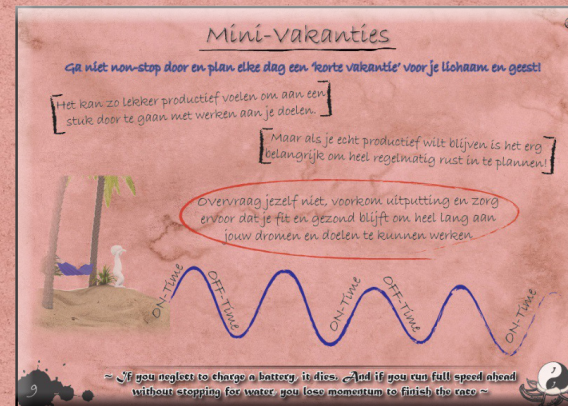 Mini-Vakanties
Ga niet non-stop door en plan elke dag een 'korte vakantie' voor je lichaam en geest!
Het kan zo lekker productief voelen om aan een
stuk door te gaan met werken aan je doelen.
Maar als je echt productief wilt blijven is het erg
belangrijk om heel regelmatig rust in te plannen!
Overvraag jezelf niet, voorkom uitputting en zorg
ervoor dat je fit en gezond blijft om heel lang aan
jouw dromen en doelen te kunnen werken.
ON-Time
OFF-Time
ON-Time
OFF-Time
ON-Time
~ If you neglect to charge a battery, it dies. And if you run full speed ahead
without stopping for water, you lose momentum to finish the race ~
9